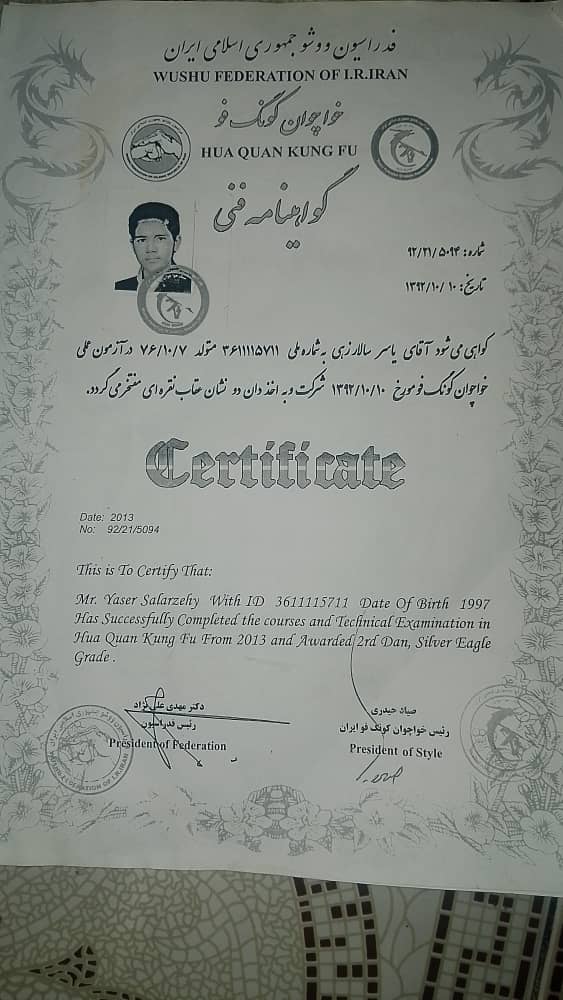 فدراسیون ووشو جمهوری اسلامی ایران
WUSHU FEDERATION OF I.R.IRAN
خواچوان کونگ فو
HUA QUAN KUNG FU
گواهینامه فنی
شماره: ۹۲/۲۱/۵۰۹۴
تاریخ: ۱۳۹۲/۱۰/۱۰
گواهی می شود آقای یاسر سالارزهی به شماره ملی ۳۶۱۱۱۱۵۷۱۱ متولد ۷۶/۱۰/۷ در آزمون عملی
خواچوان کونگ فو مورخ ۱۳۹۲/۱۰/۱۰ شرکت و به اخذ دان دو نشان عقاب نقره ای مفتخر می گردد.
Certificate
Date: 2013
No: 92/21/5094
This is To Certify That:
Mr. Yaser Salarzehy With ID 3611115711 Date Of Birth 1997
Has Successfully Completed the courses and Technical Examination in
Hua Quan Kung Fu From 2013 and Awarded 2rd Dan, Silver Eagle
Grade .
صیاد حیدری
رئیس خواچوان کونگ فو ایران
President of Style
دکتر مهدی علی نژاد
رئیس فدراسیون
President of Federation